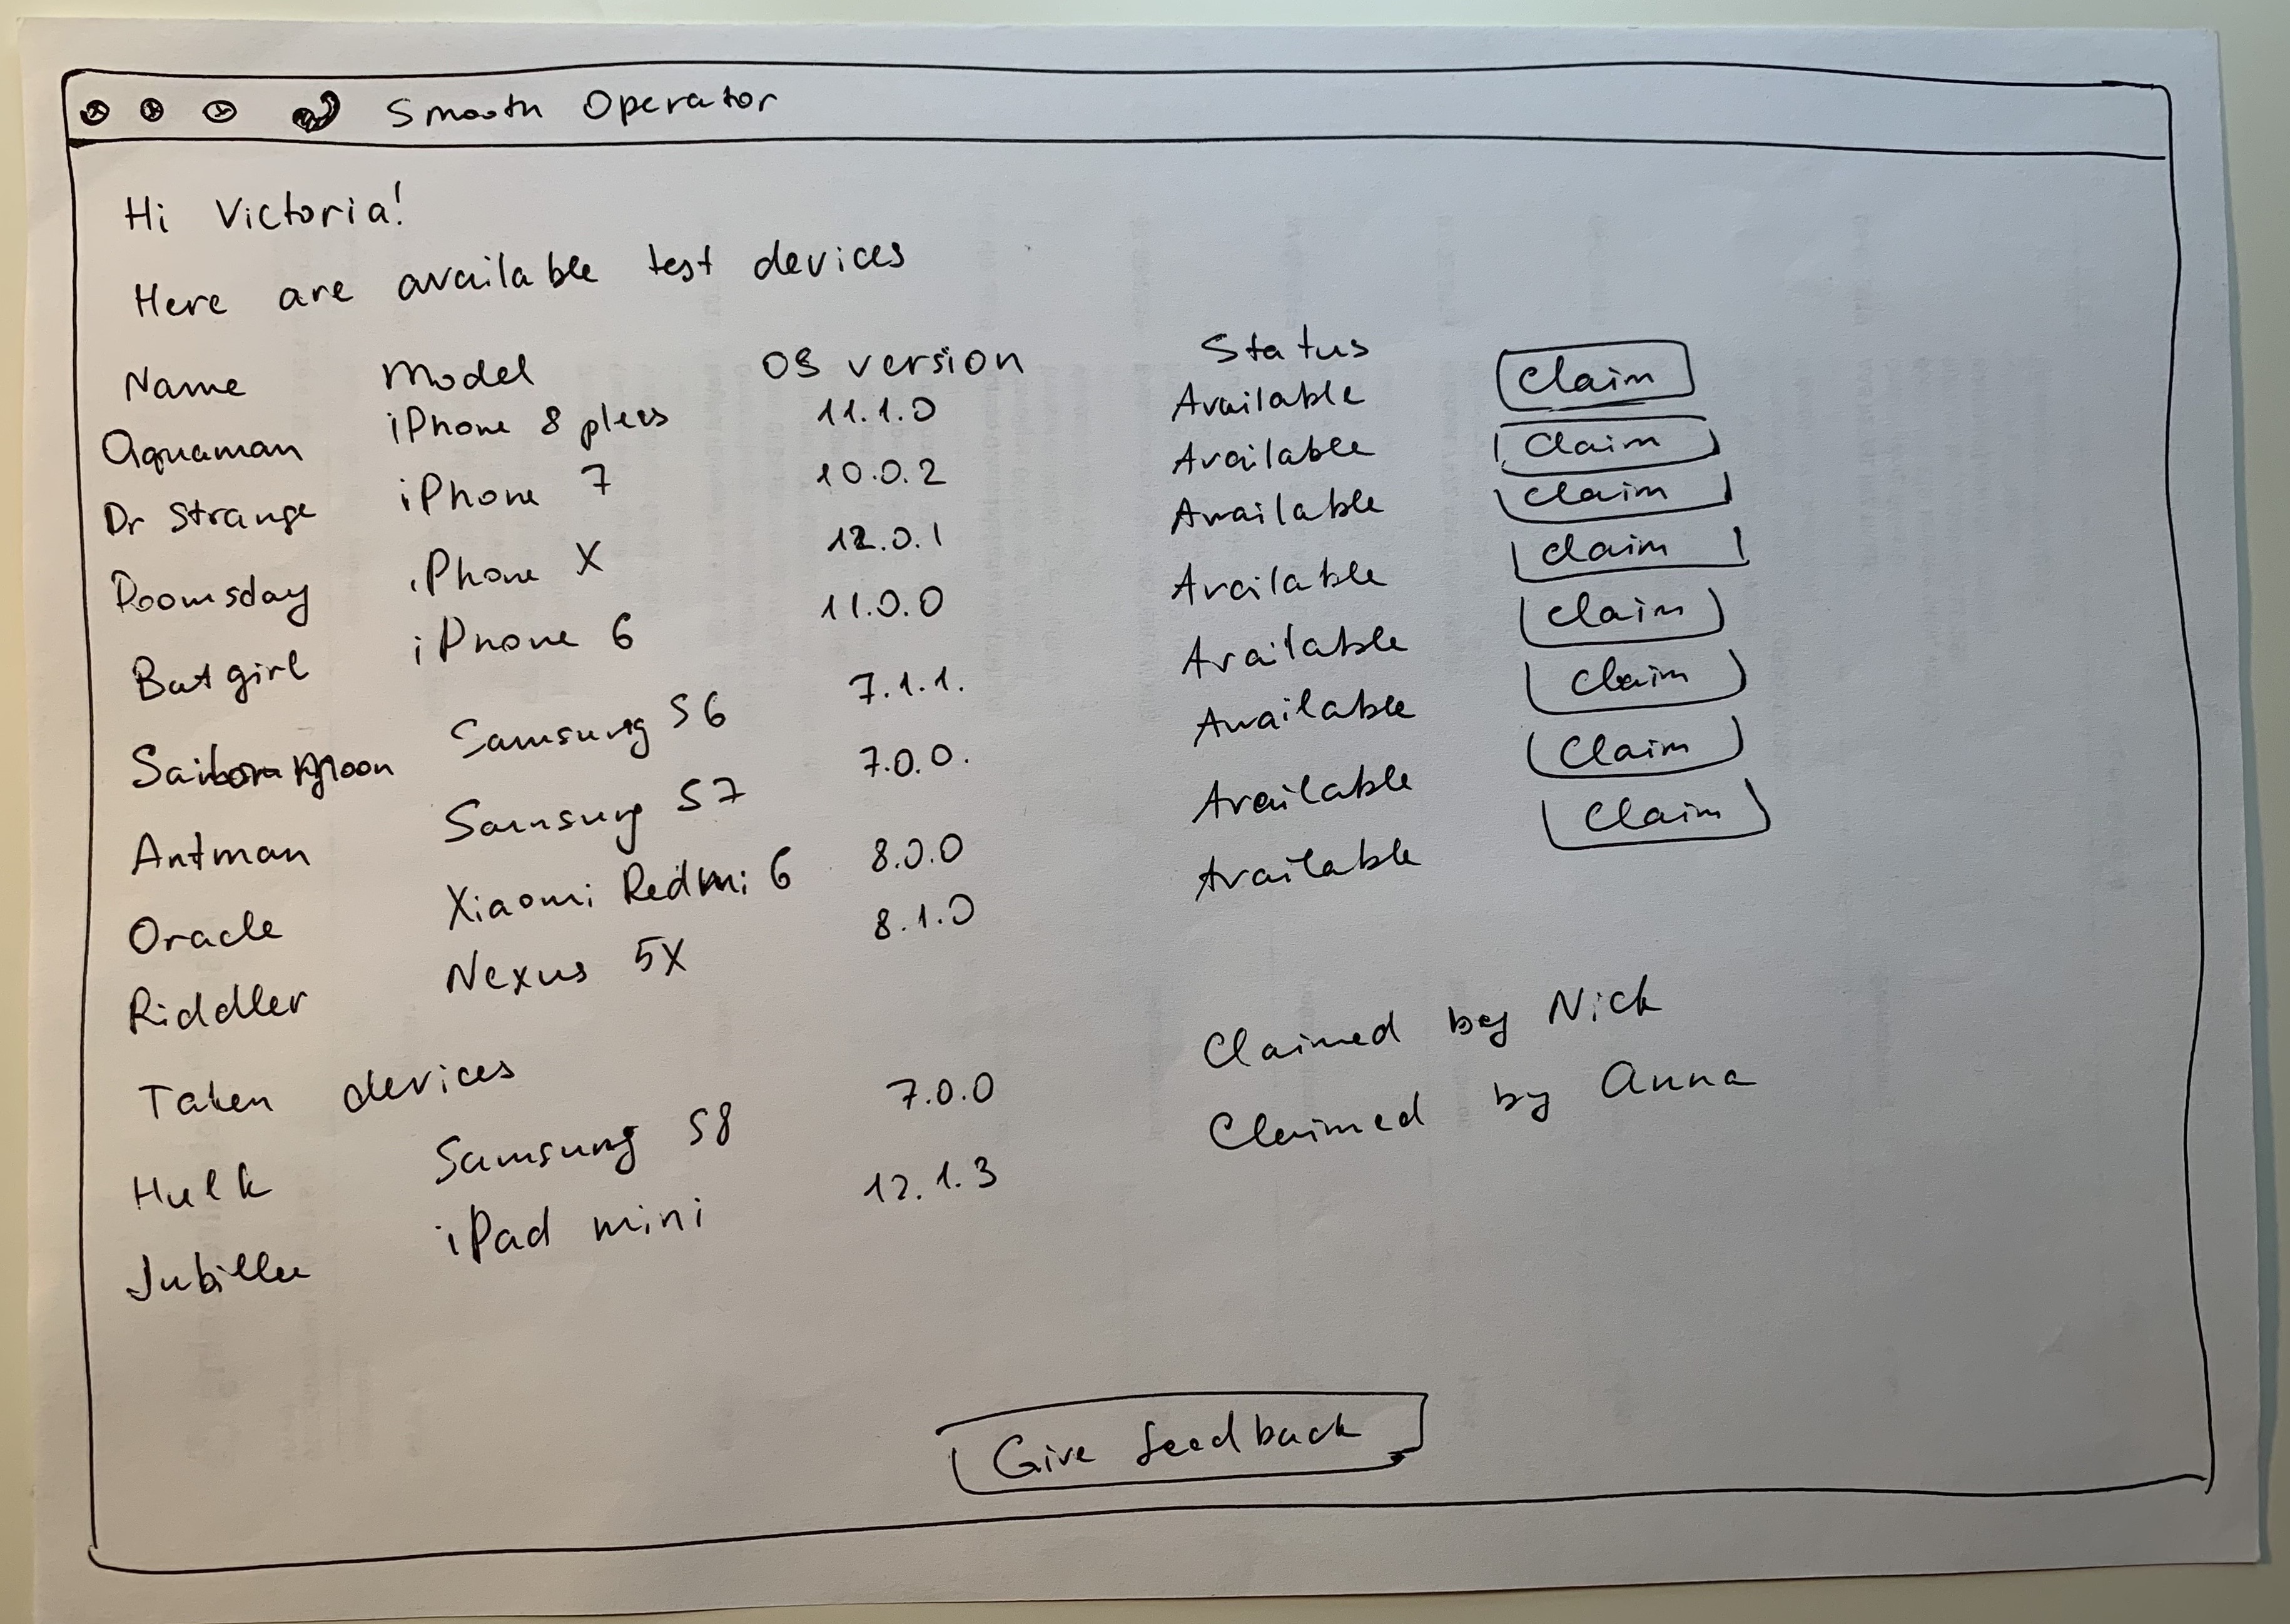 Smooth Operator
Hi Victoria!
Here are available test devices
Name Model OS version Status
Aquaman iPhone 8 plus 11.1.0 Available Claim
Dr Strange iPhone 7 10.0.2 Available Claim
Doomsday iPhone X 12.0.1 Available Claim
Batgirl iPhone 6 11.0.0 Available Claim
Moon Samsung S6 7.1.1. Available Claim
Antman Samsung S7 7.0.0. Available Claim
Oracle Xiaomi Redmi 6 8.0.0 Available Claim
Riddler Nexus 5X 8.1.0 Available Claim
Taken devices
Hulk Samsung S8 7.0.0 Claimed by Nick
Jubillee iPad mini 12.1.3 Claimed by Anna
Give feedback